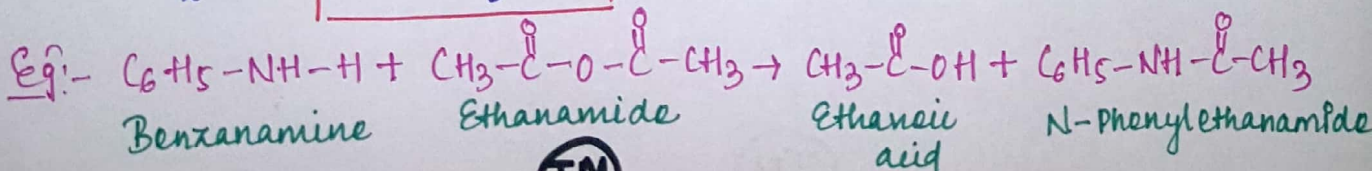 Eg:- C6H5-NH-H + CH3-C(=O)-O-C(=O)-CH3 → CH3-C(=O)-OH + C6H5-NH-C(=O)-CH3
Benzanamine Ethanamide Ethanoic N-Phenylethanamide
acid